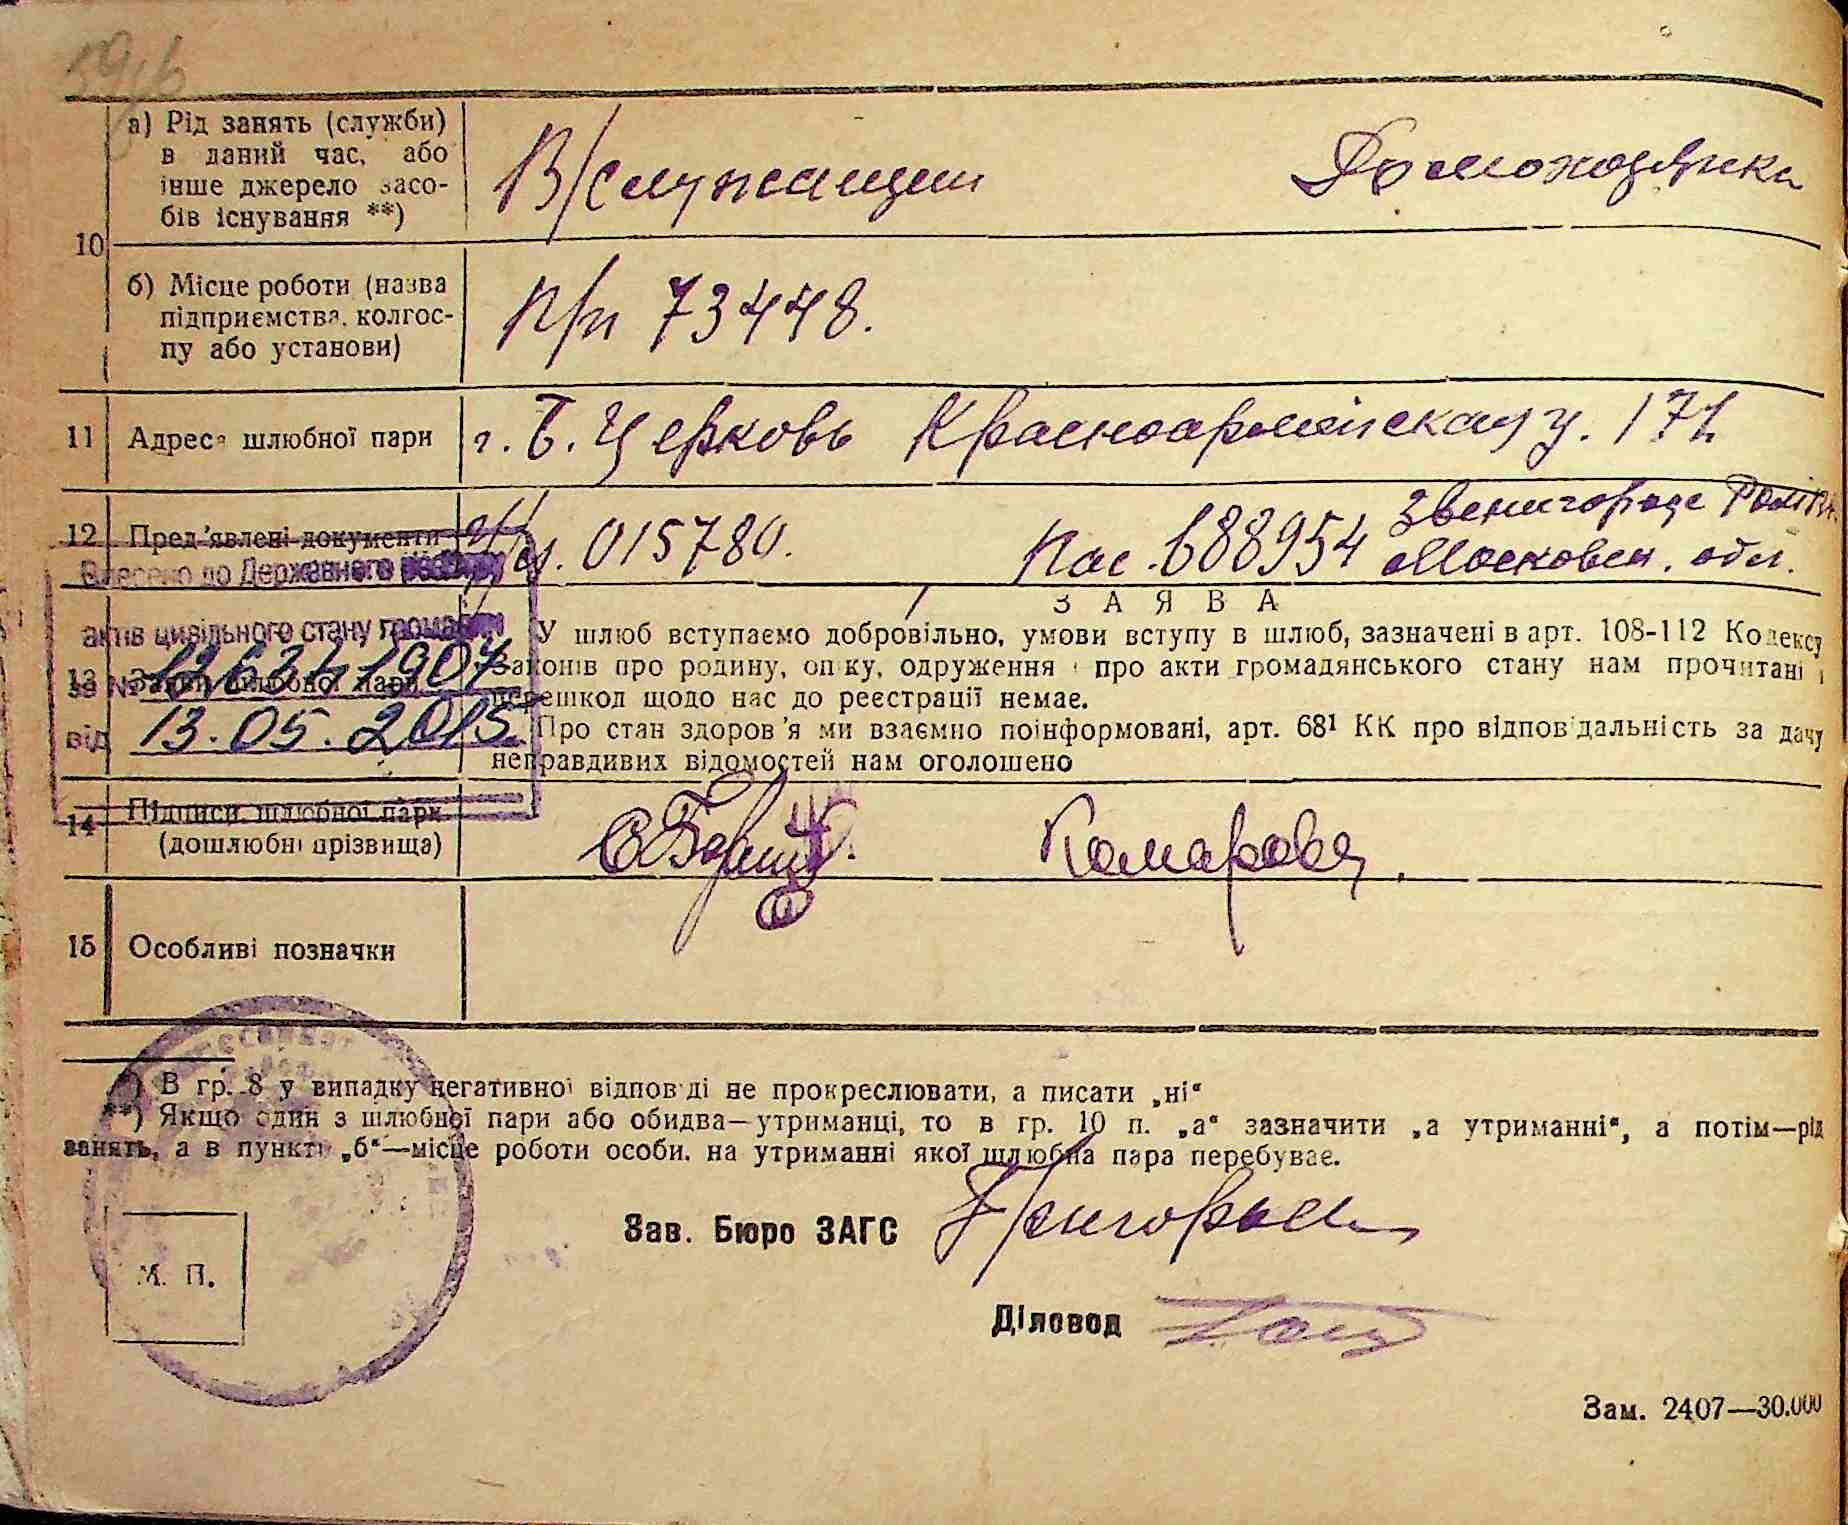 а) Рід занять (служби)
в даний час, або
інше джерело засо-
бів існування **)
В/служащий
Домохозяйка
10
б) Місце роботи (назва
підприємства, колгос-
пу або установи)
п/п 73448.
11
Адреса шлюбної пари
г. Б. Церковь Красноармейская у. 171
12
Пред'явлені документи
015780.
Пас. 688954
Звенигороде
Московск. обл.
Внесено до Державного
актів цивільного стану громадян
13
від 13.05.2015
ЗАЯВА
У шлюб вступаємо добровільно, умови вступу в шлюб, зазначені в арт. 108-112 Кодексу
Законів про родину, опіку, одруження і про акти громадянського стану нам прочитані і
перешкод щодо нас до реєстрації немає.
Про стан здоров'я ми взаємно поінформовані, арт. 68¹ КК про відповідальність за дачу
неправдивих відомостей нам оголошено
14
Підписи шлюбної пари
(дошлюбні прізвища)
Комарова
15
Особливі позначки
*) В гр. 8 у випадку негативної відповіді не прокреслювати, а писати „ні“
**) Якщо один з шлюбної пари або обидва—утриманці, то в гр. 10 п. „а“ зазначити „а утриманні“, а потім—рід
занять, а в пункті „б“—місце роботи особи, на утриманні якої шлюбна пара перебуває.
Зав. Бюро ЗАГС
М. П.
Діловод
Зам. 2407—30.000